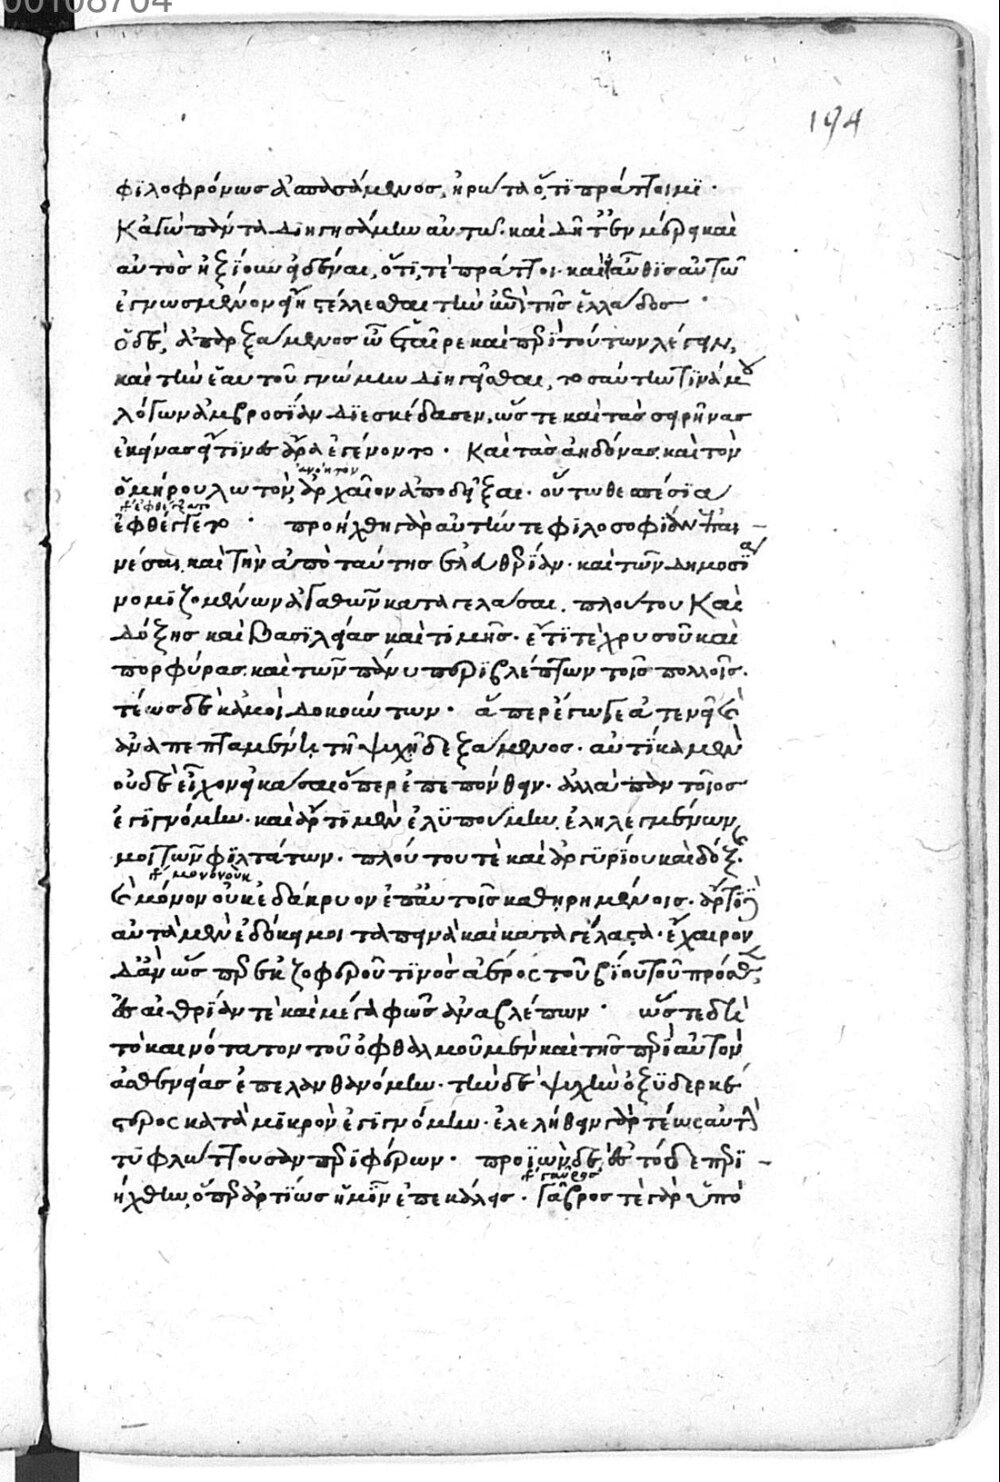 194
φϊλοφρόνως ἀσπασάμενος, ἠρώτα ὅ,τι πράττοιμϊ·
Κἀγὼ πάντα διηγησάμην αὐτῷ· καὶ δὴ τὸ ἐν μέρει καὶ
αὐτὸς ἠξίουν εἰδέναι, ὅ,τι, τὲ πράττοι· καὶ εἰ αὖθις αὐτῷ
ἐγνωσμένον εἴη στέλλεσθαι τὴν ἐπὶ τῆς ἑλλάδος·
ὁ δὲ, ἀπαρξάμενος ὦ ἑταῖρε καὶ περὶ τούτων λέγειν,
καὶ τὴν ἑαυτοῦ γνώμην διηγεῖσθαι, τοσαύτην τινά μου
λόγων ἀμβροσίαν διεσκέδασεν, ὥς τε καὶ τὰς σειρῆνας
ἐκείνας εἴ τινες ἄρα ἐγένοντο· Καὶ τὰς ἀηδόνας καὶ τὸν
ἀνόητον
ὁμήρου λωτὸν, ἀρχαῖον ἀποδεῖξαι· οὕτω θεσπέσια
ἐφθέγξατο
ἐφθέγγετο· προήχθη γὰρ αὐτήν τε φιλοσοφίαν ἐπαι-
νέσαι, καὶ τὴν ἀπὸ ταύτης ἐλευθερίαν· καὶ τῶν δημοσίᾳ
νομιζομένων ἀγαθῶν καταγελάσαι. πλούτου Καὶ
δόξης καὶ βασιλείας καὶ τιμῆς· ἔτι τὲ χρυσοῦ καὶ
πορφύρας. καὶ τῶν πάνυ περιβλέπτων τοῖς πολλοῖς·
τέως δὲ κἀμοὶ δοκούντων· ἅπερ ἐγώ γε ἀτενεῖ καὶ
ἀναπεπταμένῃ τῇ ψυχῇ δεξάμενος· αὐτίκα μὲν
οὐδὲ εἶχον εἰκάσαι ὅπερ ἐπεπόνθειν· ἀλλὰ παντοῖος
ἐγιγνόμην· καὶ ἄρτι μὲν ἐλυπούμην, ἐληλεγμένων
μοι τῶν φιλτάτων· πλούτου τὲ καὶ ἀργυρίου καὶ δόξης·
μονονοὺκ
καὶ μόνον οὐκ ἐδάκρυον ἐπ᾽ αὐτοῖς καθῃρημένοις· ἄρτι δὲ
αὐτὰ μὲν ἐδόκει μοι ταπεινὰ καὶ καταγέλαστα· ἔχαιρον
δ᾽ ἂν ὥσπερ ἐκ ζοφεροῦ τινὸς ἀέρος τοῦ βίου τοῦ πρόσθεν,
ἐς αἰθρίαν τὲ καὶ μέγα φῶς ἀναβλέπων· ὥστε δὴ
τὸ καινότατον τοῦ ὀφθαλμοῦ μὲν καὶ τῆς περὶ αὐτὸν
ἀσθενείας ἐπελανθανόμην· τὴν δὲ ψυχὴν ὀξυδερκέ
στερος κατὰ μικρὸν ἐγιγνόμην· ἐλελήθειν γὰρ τέως αὐτὴν
τυφλώττουσαν περιφέρων· προϊὼν δὲ, ἐς τόδε περι-
γαῦρος
ήχθην, ὅπερ ἀρτίως ἡμῖν ἐπεκάλεις· γαῦρος τὲ γὰρ ὑπὸ